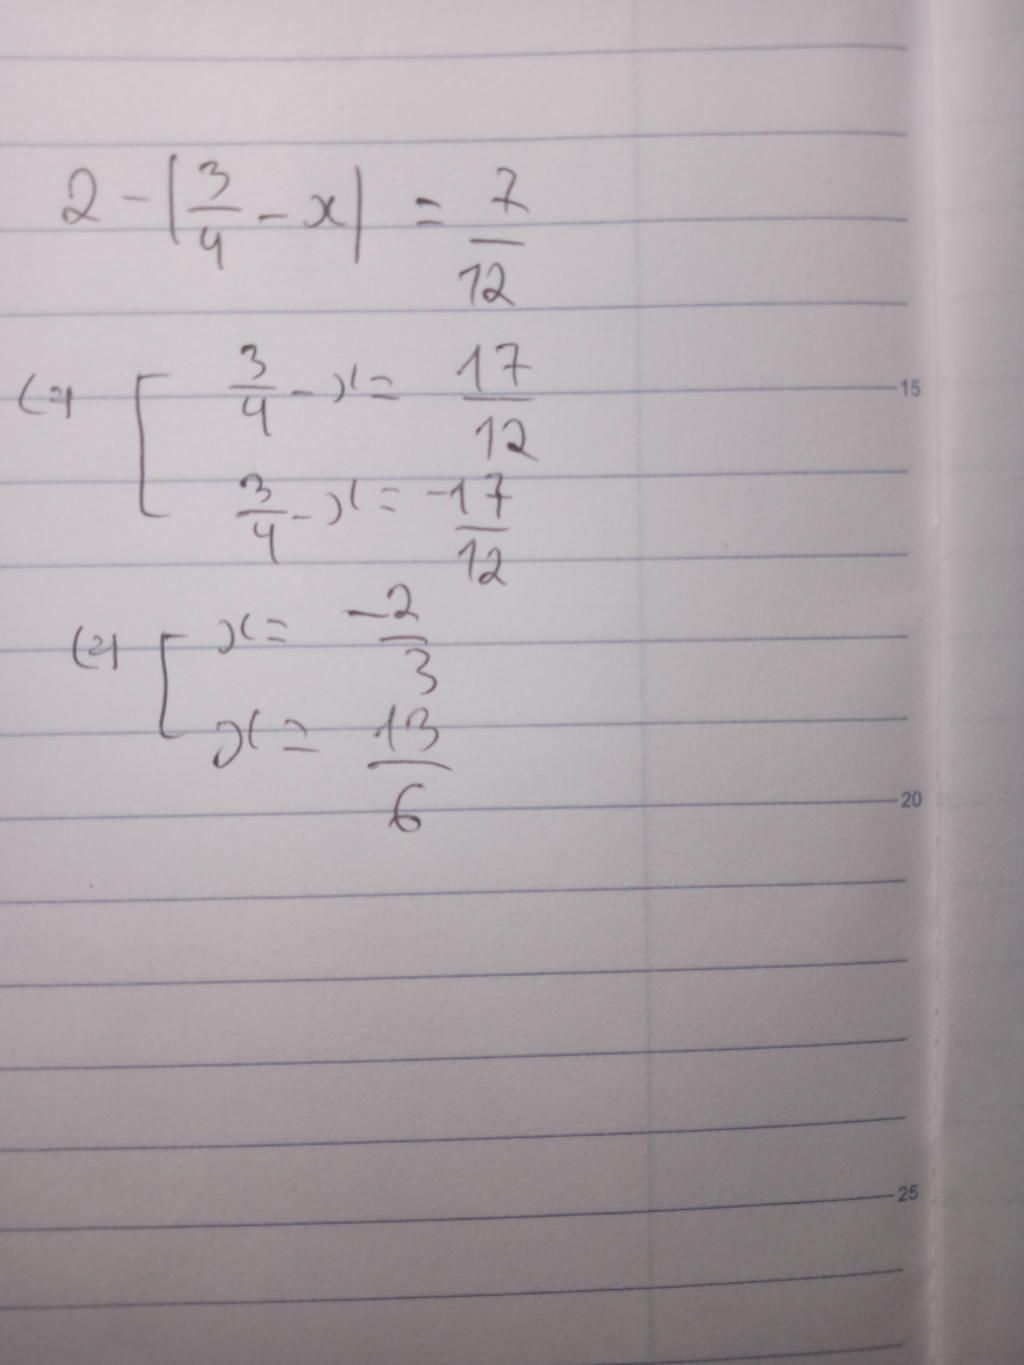 2 - |3/4 - x| = 7/12
15
(=) [ 3/4 - x = 17/12
3/4 - x = -17/12
(=) [ x = -2/3
x = 13/6
20
25